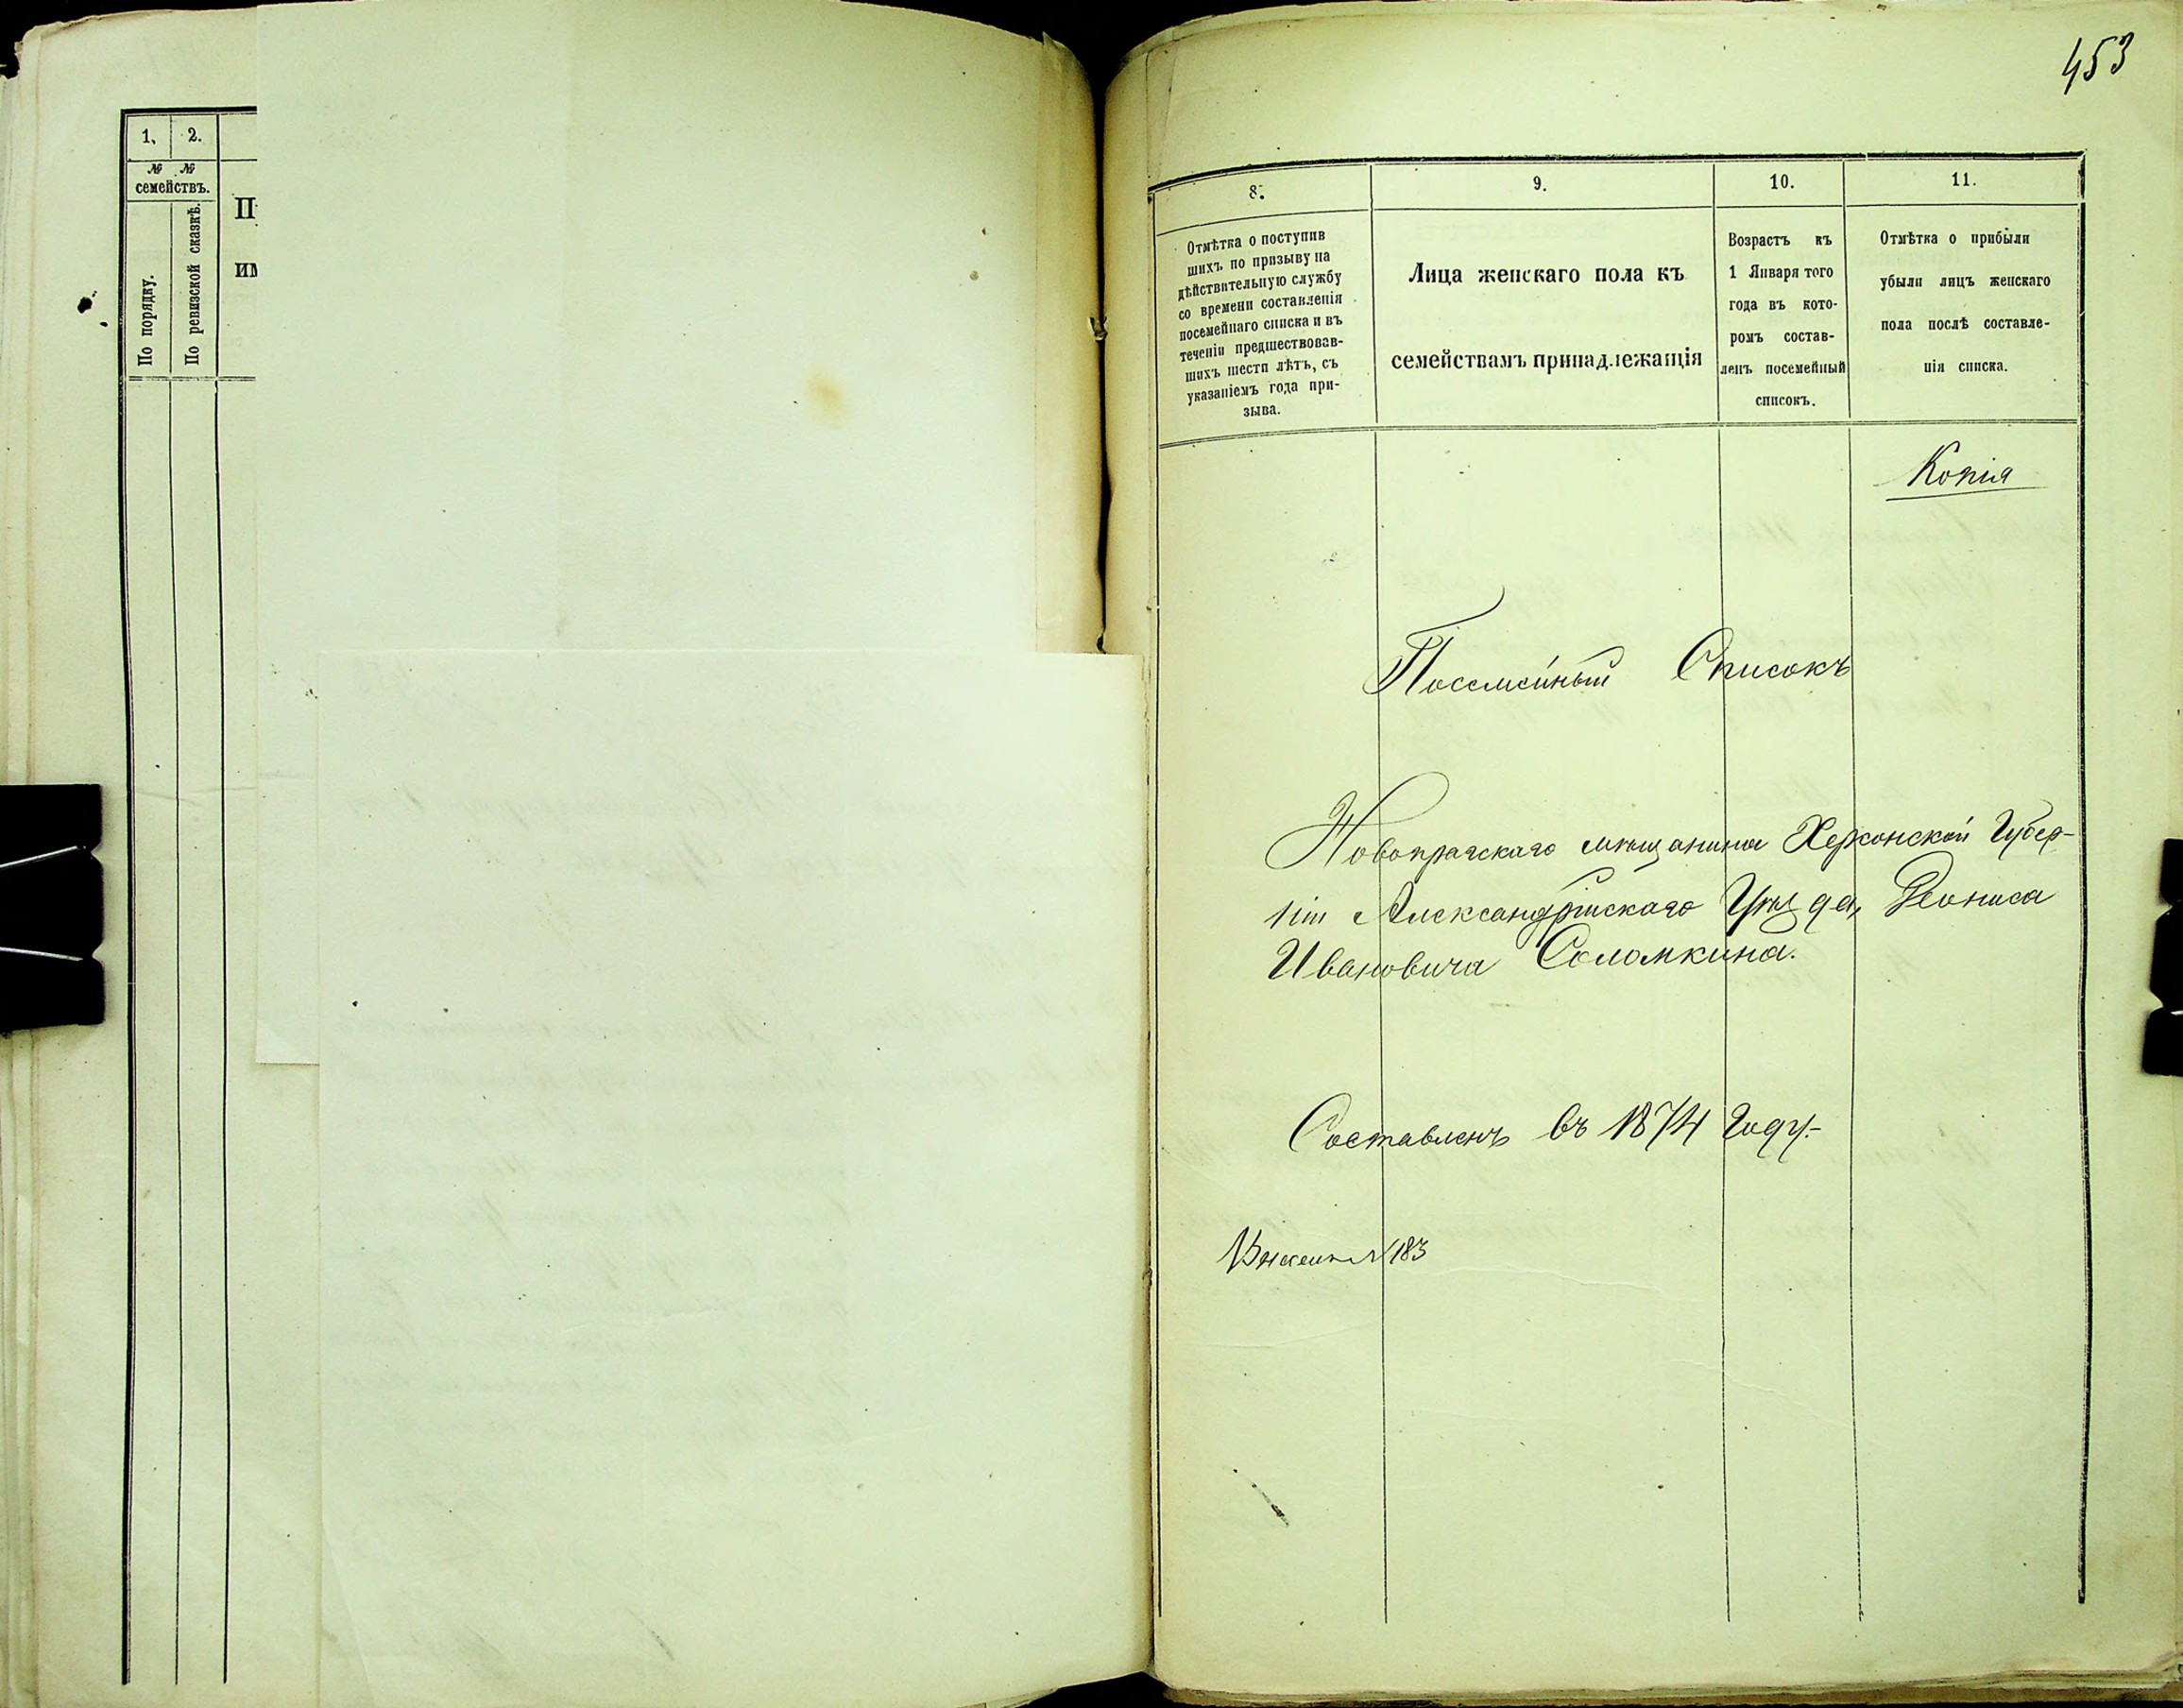 1. 2.
№ №
семействъ.
По порядку.
По ревизской сказкѣ.
453
8. 9. 10. 11.
Отмѣтка о поступив
шихъ по призыву на
дѣйствительную службу
со времени составленія
посемейнаго списка и въ
теченіи предшествовав-
шихъ шести лѣтъ, съ
указаніемъ года при-
зыва.
Лица женскаго пола къ
семействамъ принадлежащія
Возрастъ къ
1 Января того
года въ кото-
ромъ состав-
ленъ посемейный
списокъ.
Отмѣтка о прибыли
убыли лицъ женскаго
пола послѣ составле-
нія списка.
Копія
Посемейный Списокъ
Новопражскаго мѣщанина Херсонской Губер-
ніи Александрійскаго Уѣзда, Деониса
Ивановича Соломкина.
Составленъ въ 1874 Году.-
№ 183